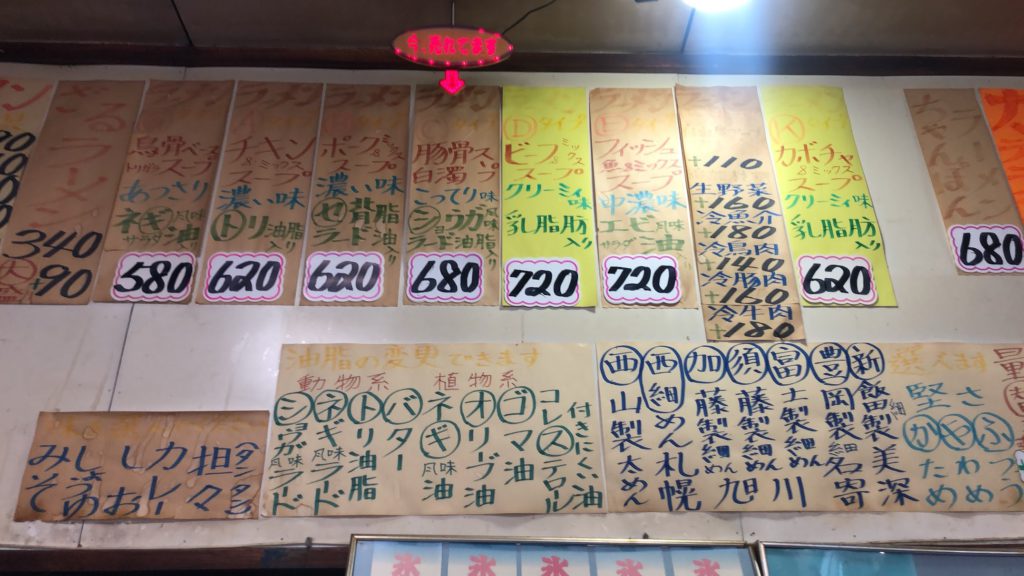 今、売れてます
ざるラーメン
340
+90
鳥骨ベース
トリガラスープ
あっさり
ネギ風味
サラダ油
580
ラーメン
タイプ
チキン
&ミックス
スープ
濃い味
トリ油脂
入り
620
ラーメン
タイプ
ポーク
&ミックス
スープ
濃い味
セ背脂
ラード
620
ラーメン
タイプ
豚骨スープ
白濁
こってり
ショウガ風味
ラード油脂
680
Dタイプ
ビーフ
&ミックス
スープ
クリーミィ味
乳脂肪
入り
720
ラーメン
タイプ
フィッシュ
魚&ミックス
スープ
中濃味
エビ風味
サラダ油
720
+110
生野菜
+160
冷魚介
+180
冷鳥肉
+140
冷豚肉
+160
冷牛肉
+180
Kタイプ
カボチャ
&ミックス
スープ
クリーミィ味
乳脂肪
入り
620
ちゃんぽん
680
みそ
しょうゆ
しお
カレー
担々
タンタン
油脂の変更できます
動物系
植物系
ショウガ風味ラード
ネギ風味ラード
トリ油脂
バター
ネギ風味油
オリーブ油
ゴマ油
コレステロール
付きにくい油
西山製太めん
西細めん札幌
加藤製細めん旭
須藤製細めん旭
富士製細めん川
豊岡製細名寄
新飯田製細美深
選べます
堅さ
かため
やわめ
ふつう
氷
氷
氷
氷
氷